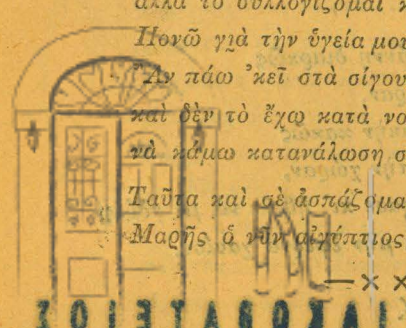 ἀλλὰ τὸ συλλογίζομαι
Πονῶ γιὰ τὴν ὑγεία μου
Ἂν πάω ᾽κεῖ στὰ σίγου
καὶ δὲν τὸ ἔχω κατὰ νο
νὰ κάμω κατανάλωση σ
Ταῦτα καὶ σὲ ἀσπάζομα
Μαρῆς ὁ νῦν αἰγύπτιος